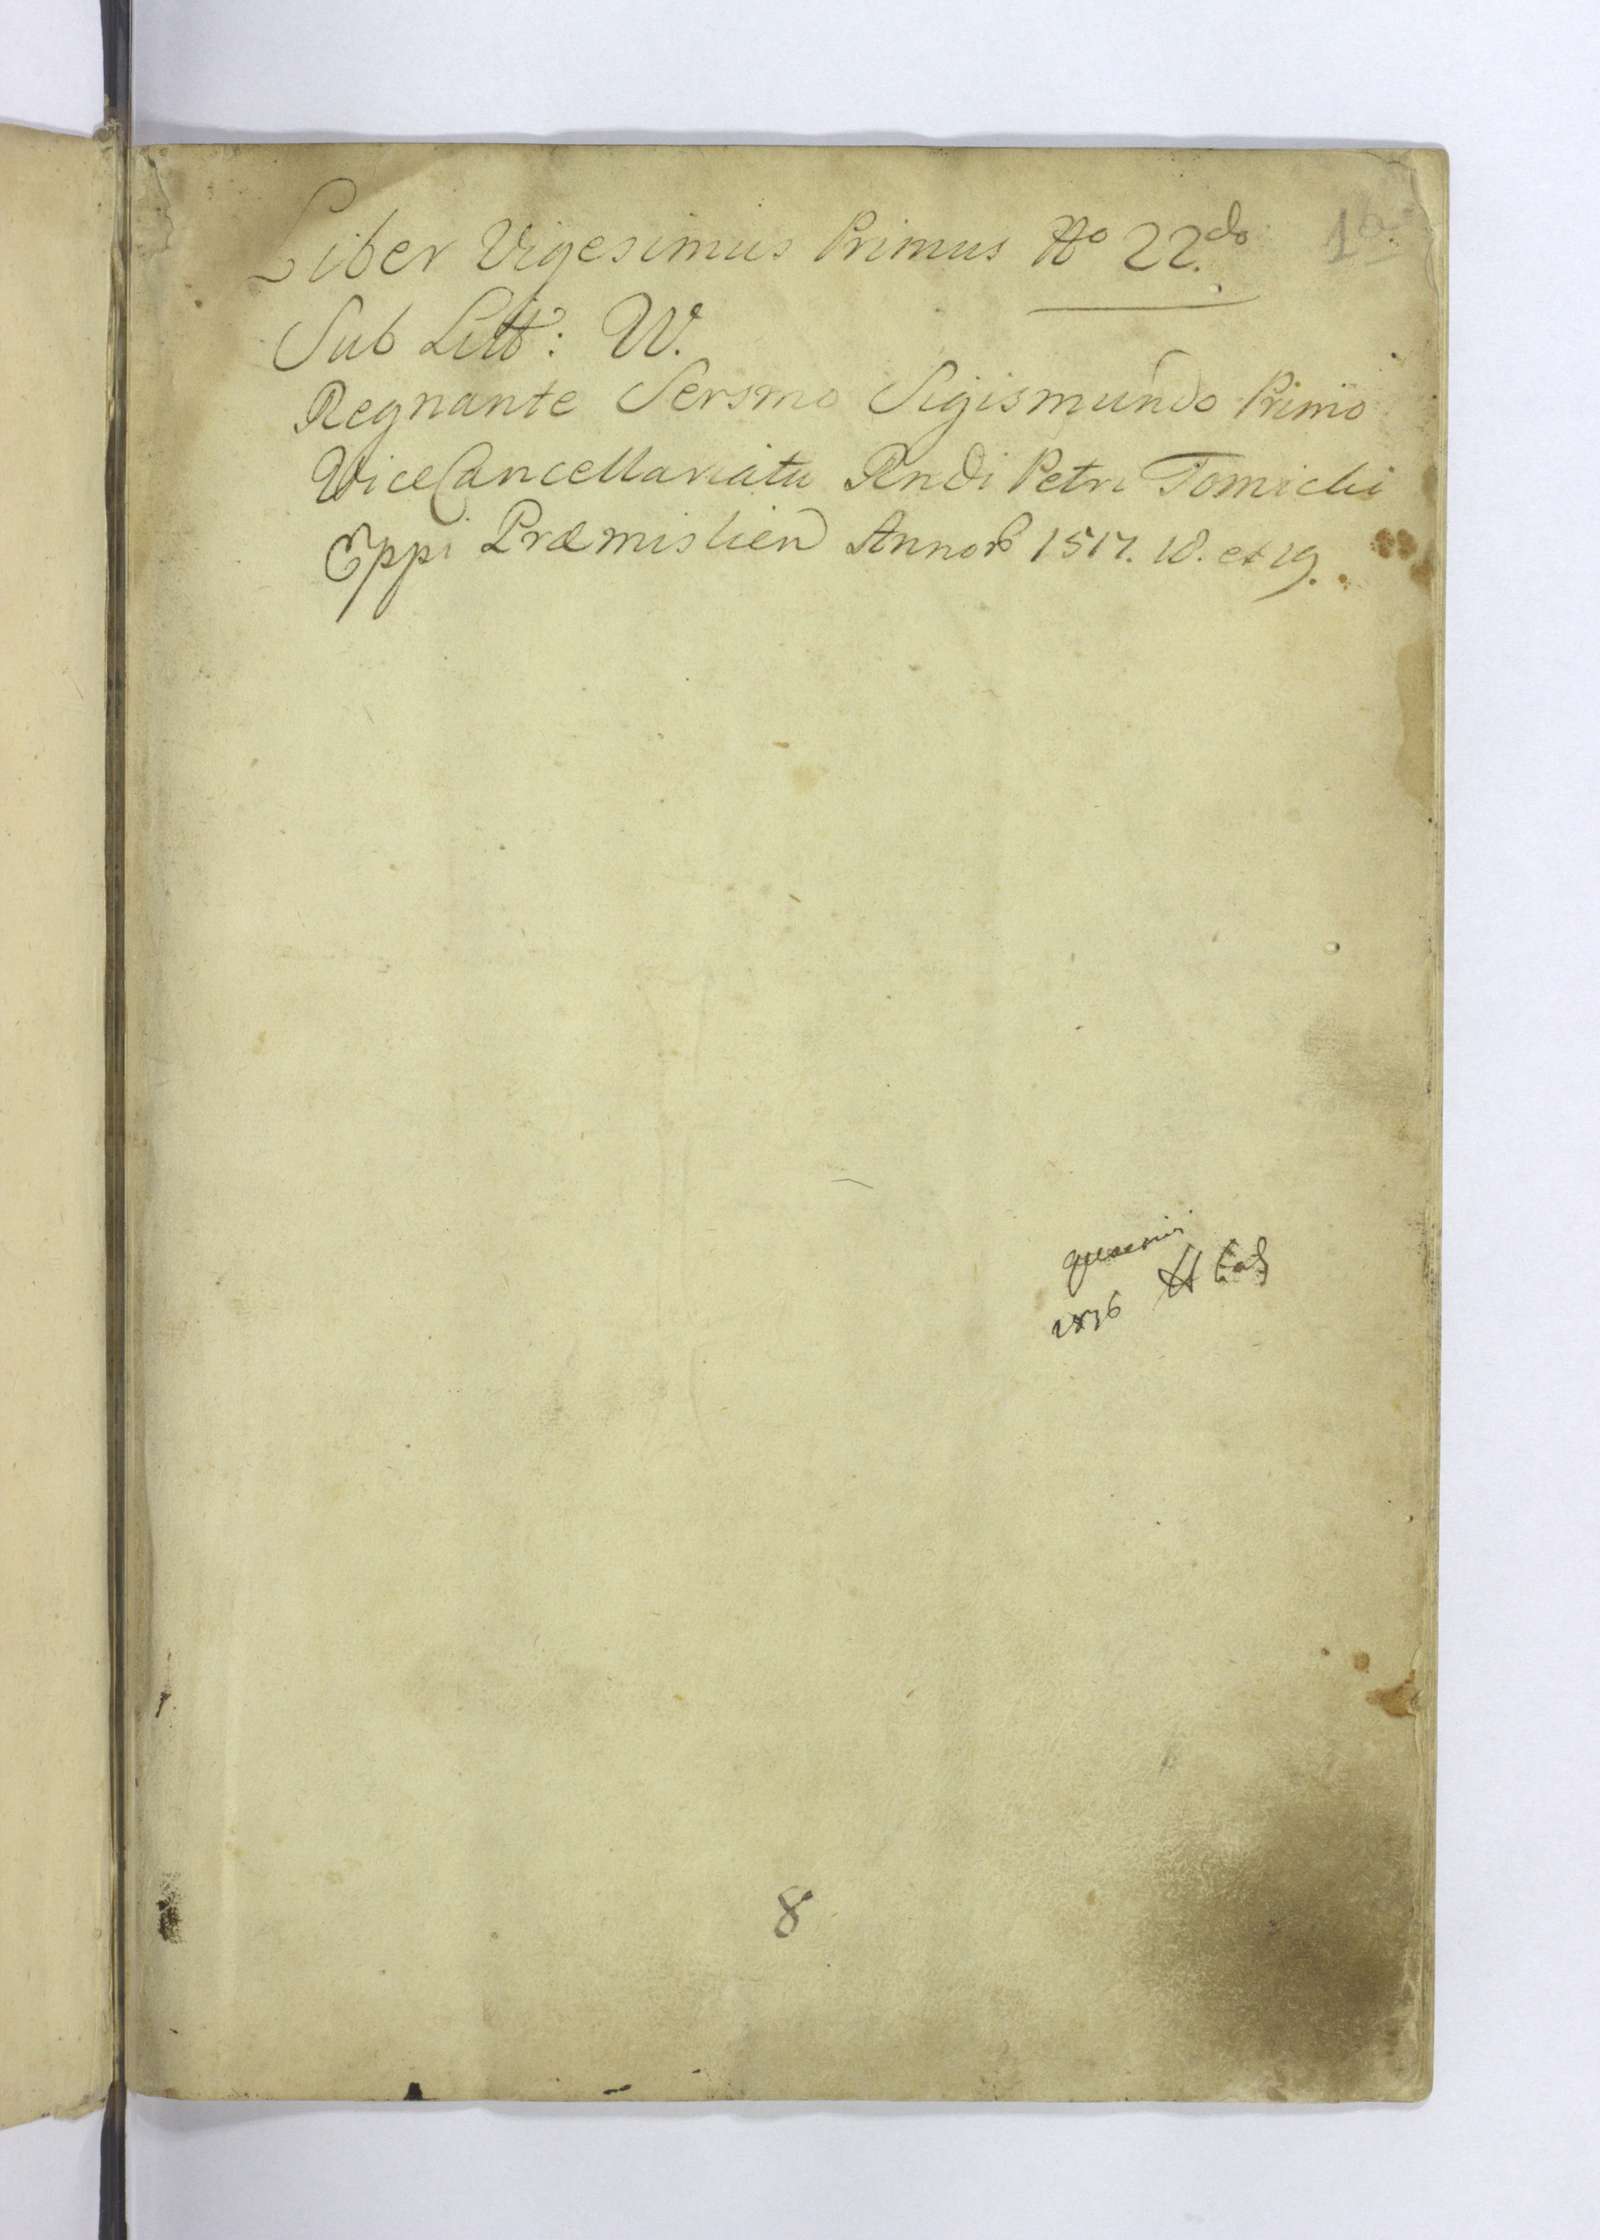 Liber Vigesimus Primus No 22.do
Sub Litt: W.
Regnante Sersmo Sigismundo Primo
ViceCancellariatu Rndi Petri Tomicki
Eppi Præmislien Annor 1517. 18. et 19.
1836
8